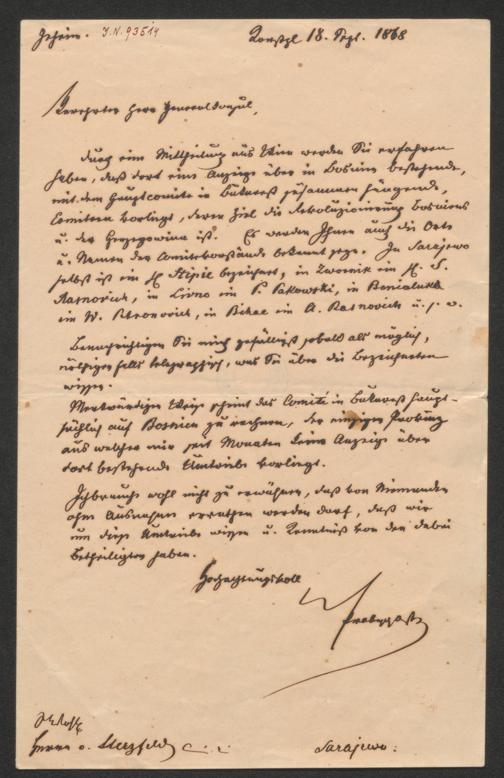 Geheim. I.N. 93514
Konstpl 18. Sept. 1868
Verehrter Herr Generalconsul,
Durch eine Mittheilung aus Wien werden Sie erfahren
haben, daß dort eine Anzeige über in Bosnien bestehende,
mit dem Hauptcomite in Bukarest zusammen hängende,
Comiteen vorliegt, deren Ziel die Revolutionirung Bosniens
u. der Herzegowina ist. Es werden Ihnen auch die Orte
u. Namen der Comitevorstände bekannt sein. In Sarajewo
selbst ist ein M. bezeichnet, in Zwornik ein M. S.
in Livno ein P. Pakowski, in Banialuka
ein W. Petronovich, in Bihac ein A. Ratnovich u. s. w.
Benachrichtigen Sie mich gefälligst sobald als möglich,
nöthigen falls telegraphisch, was Sie über die Bezeichneten
wissen.
Merkwürdiger Weise scheint das Comité in Bukarest haupt-
sächlich auf Bosnien zu rechnen, der einzigen Provinz
aus welcher mir seit Monaten keine Anzeige über
dort bestehende Umtriebe vorliegt.
Ich brauche wohl nicht zu erwähnen, daß von Niemanden
ohne Ausnahme errathen werden darf, daß wir
um diese Umtriebe wissen u. Kenntniß von den dabei
Betheiligten haben.
Hochachtungsvoll
Prokesch
Herrn v.
Sarajewo.